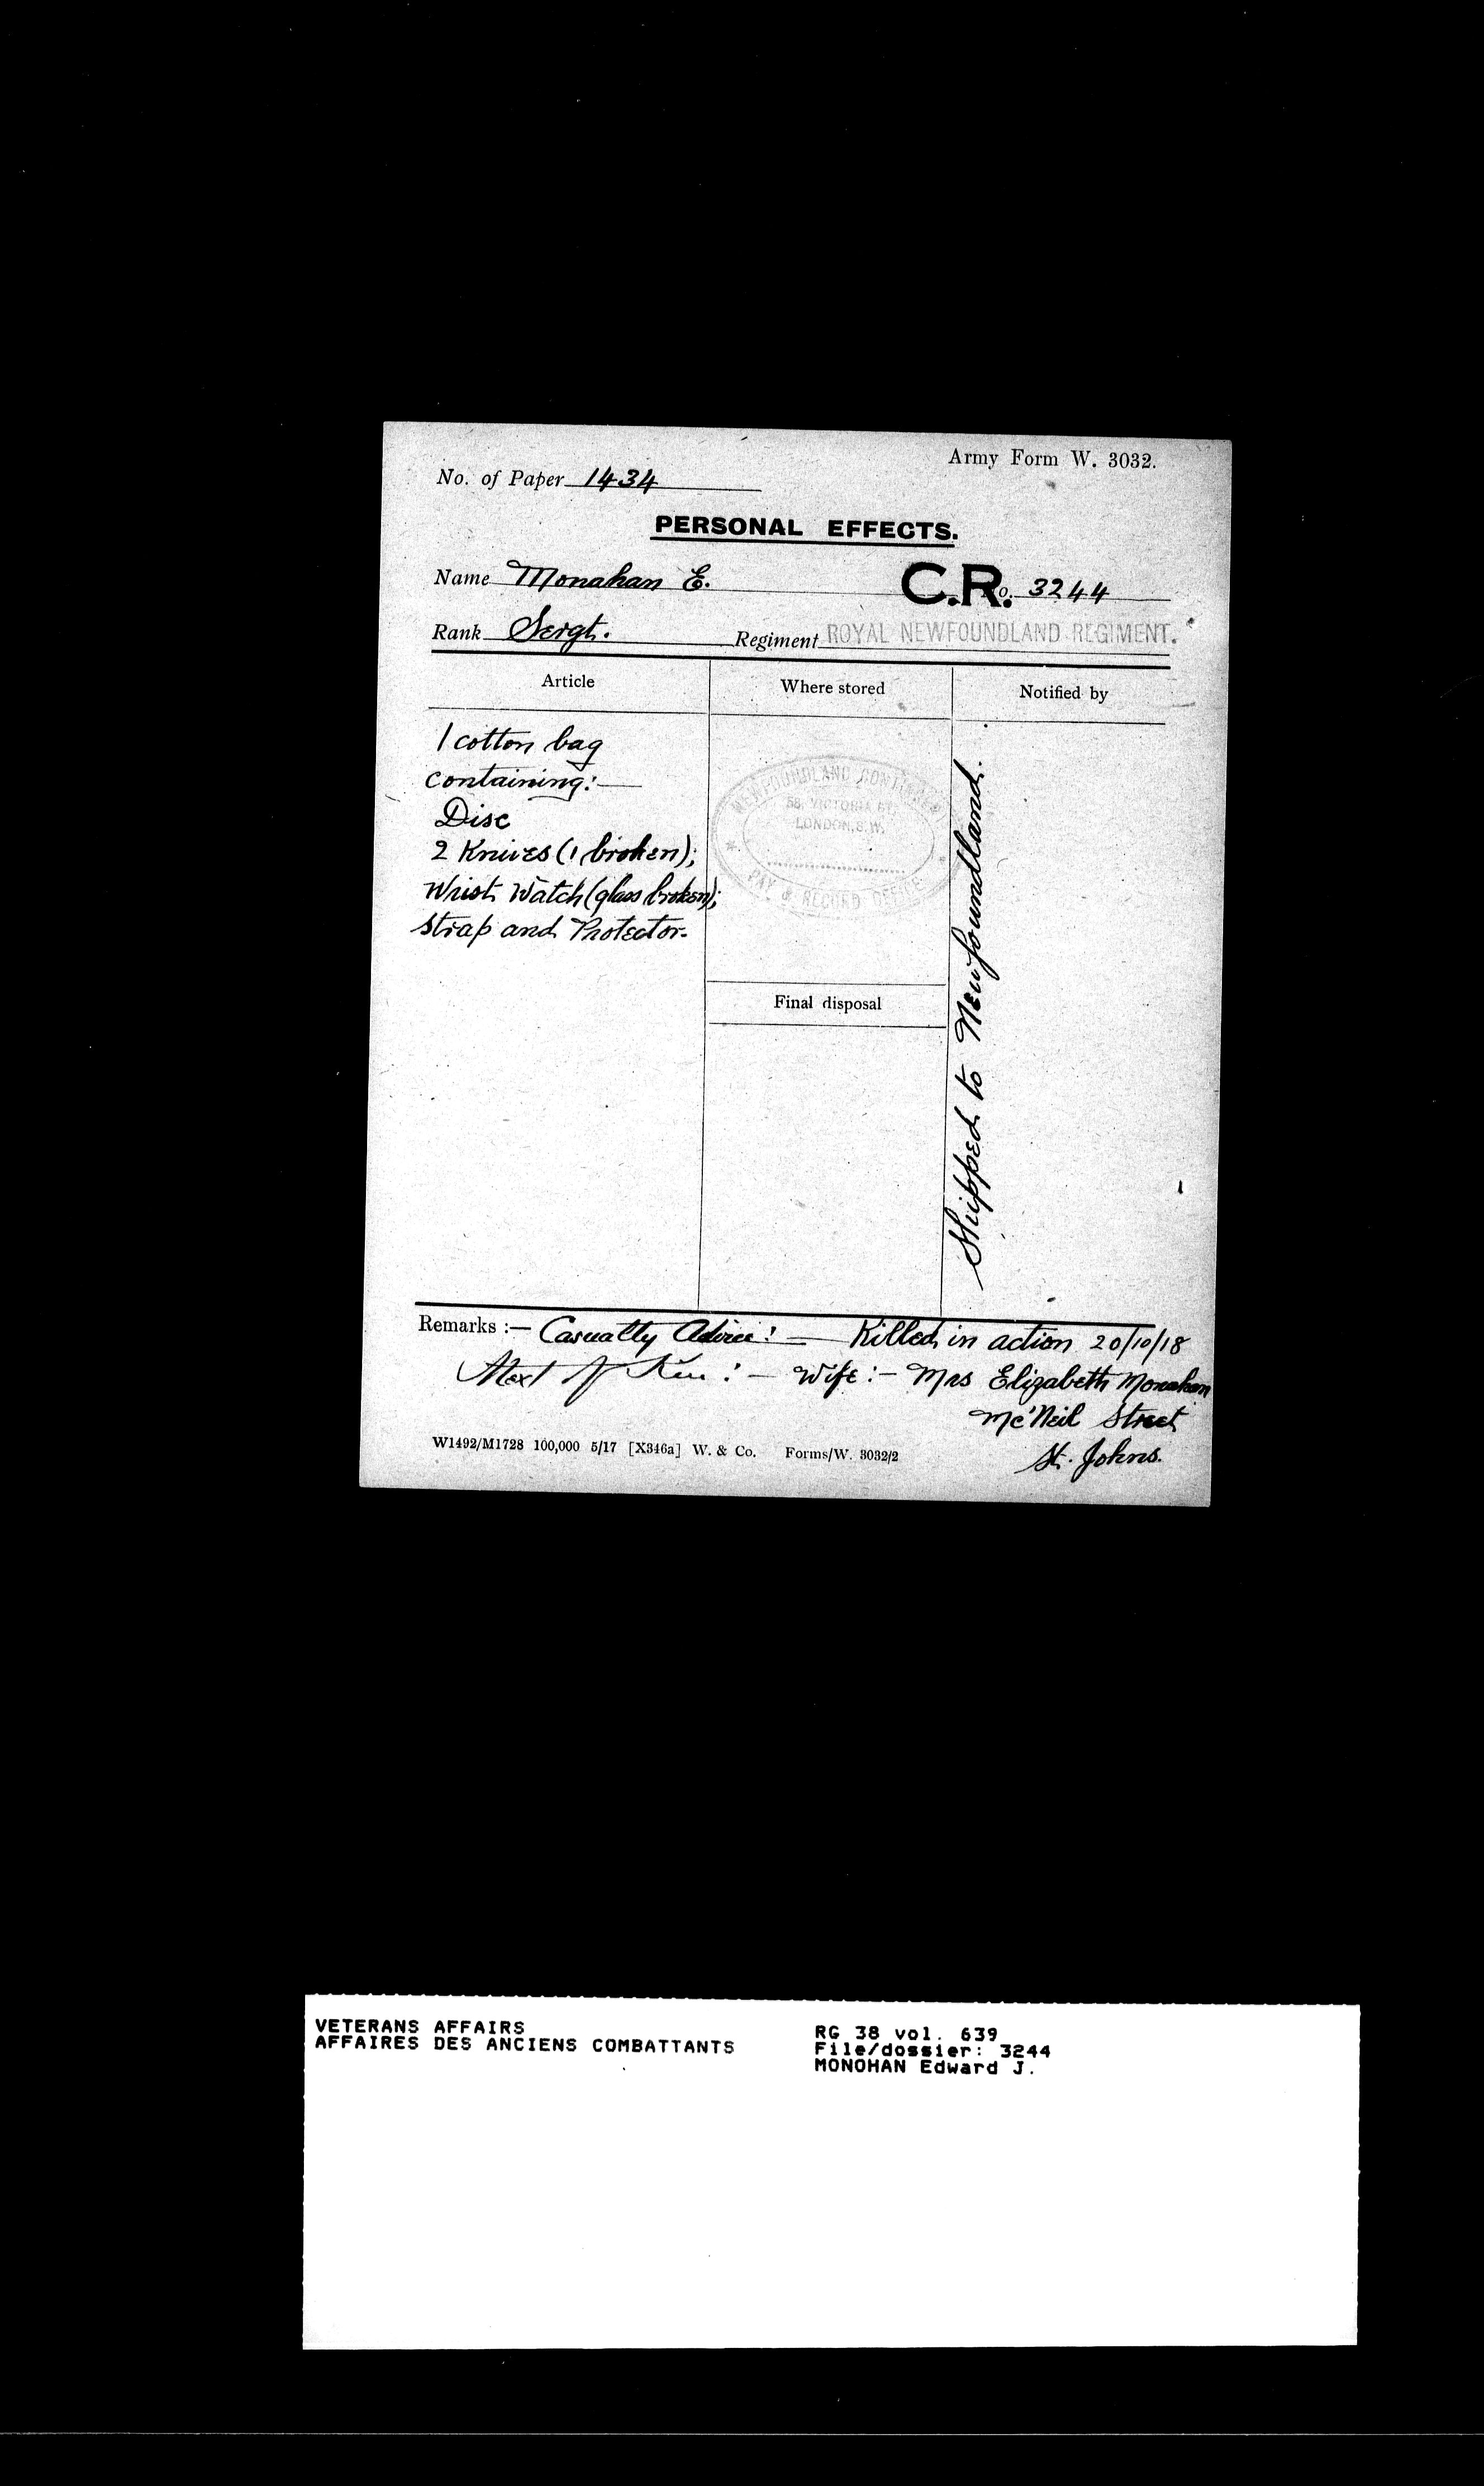 Army Form W. 3032.
No. of Paper 1434
PERSONAL EFFECTS.
Name Monahan E. C.R. o. 3244
Rank Sergt. Regiment ROYAL NEWFOUNDLAND REGIMENT.
Article
Where stored
Notified by
1 cotton bag
containing:—
Disc
2 Knives (1 broken);
Wrist Watch (glass broken);
Strap and Protector.
NEWFOUNDLAND CONTINGENT
58, VICTORIA ST.
LONDON, S.W.
PAY & RECORD OFFICE
Final disposal
Shipped to Newfoundland.
Remarks :— Casualty Advice: — Killed in action 20/10/18
Next of Kin: — Wife:— Mrs Elizabeth Monahan
Mc'Neil Street
St. Johns.
W1492/M1728 100,000 5/17 [X346a] W. & Co. Forms/W. 3032/2
VETERANS AFFAIRS
AFFAIRES DES ANCIENS COMBATTANTS
RG 38 vol. 639
File/dossier: 3244
MONOHAN Edward J.